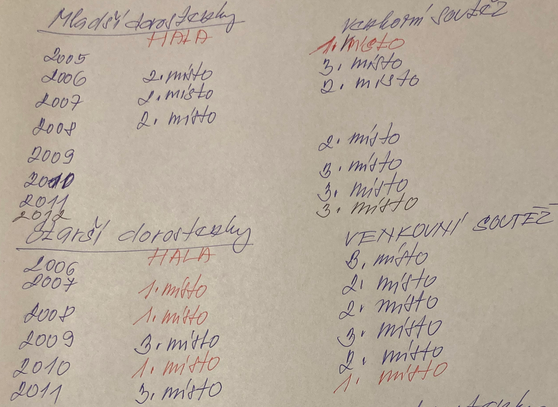 Mladší dorostenky Venkovní soutěž
HALA
2005 1. místo
2006 2. místo 3. místo
2007 2. místo 2. místo
2008 2. místo
2009 2. místo
2010 3. místo
2011 3. místo
2012 3. místo
Starší dorostenky VENKOVNÍ SOUTĚŽ
HALA
2006 3. místo
2007 1. místo 2. místo
2008 1. místo 2. místo
2009 3. místo 3. místo
2010 1. místo 2. místo
2011 3. místo 1. místo